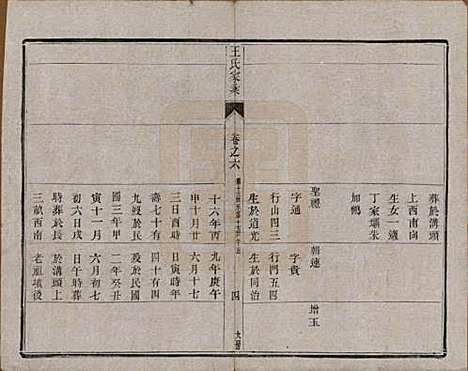 葬於溝頭
上西南向
生女一適
丁家壩朱
加鴨
聖禮
字通
行山四三
生於道光
十六年丙
甲十月廿
三日酉時
壽七十有
九歿於民
國三年甲
寅十一月
初六日戌
時葬於長
三畝西南
朝連 增玉
字貴
行門五四
生於同治
九年庚午
六月十七
日寅時年
四十有四
歿於民國
二年癸丑
六月初七
日午時葬
於溝頭上
老祖墳後
王氏家乘
卷之六
四